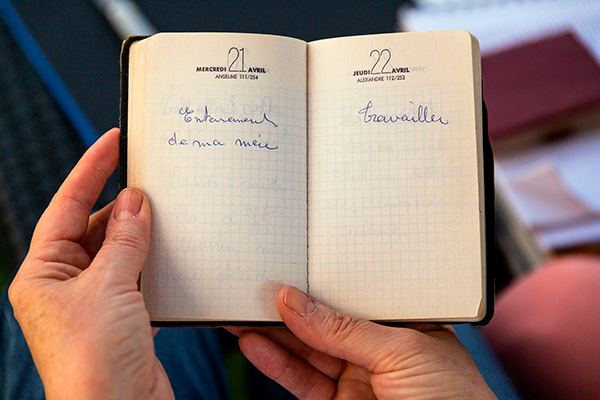 MERCREDI 21 AVRIL
ANSELME 111/254
Enterement
de ma mère
JEUDI 22 AVRIL
ALEXANDRE 112/253
travailler